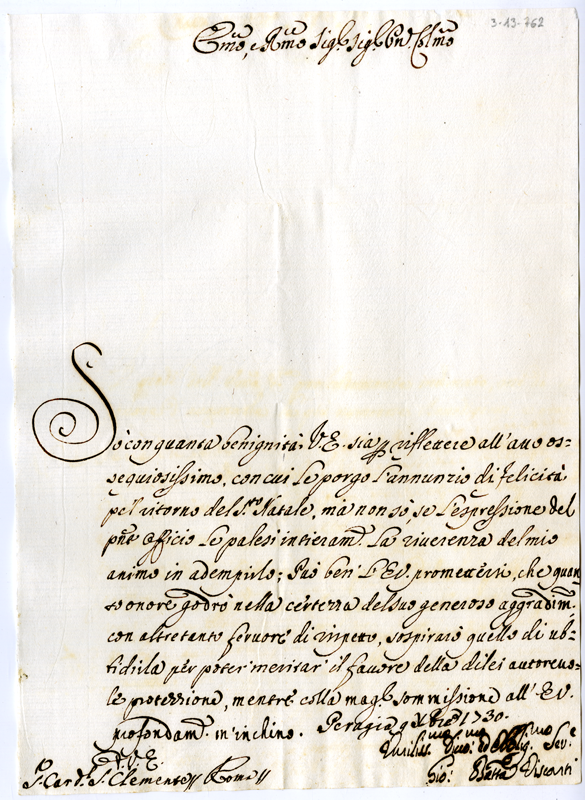 3-13-762
Em̃o, e Rm̃o Sig.r Sig.r Pñ Colm̃o
Sò con quanta benignità V.E. sia p riflettere all'atto os=
sequiosissimo, con cui Le porgo l'annunzio di felicità
pel ritorno del S.to Natale, ma non sò, se l'espressione del
pñte officio Le palesi intieram.te la riverenza del mio
animo in adempirlo; Può ben' l'E.V. promettersi, che quan=
to onore godrò nella certezza del suo generoso aggradim.to
con altretanto fervore di rispetto, sospirarò quello di ub=
bidirla per poter meritar' il favore della di lei autorevo=
le protezzione, mentre colla mag.r sommissione all' E.V.
profondam.te m'inchino. Perugia 1730.
D. V. E.
Umiliss. Devo. ed Obblig. Ser.e
S.r Card. S. Clemente // Roma //
Gio: Batta Visconti